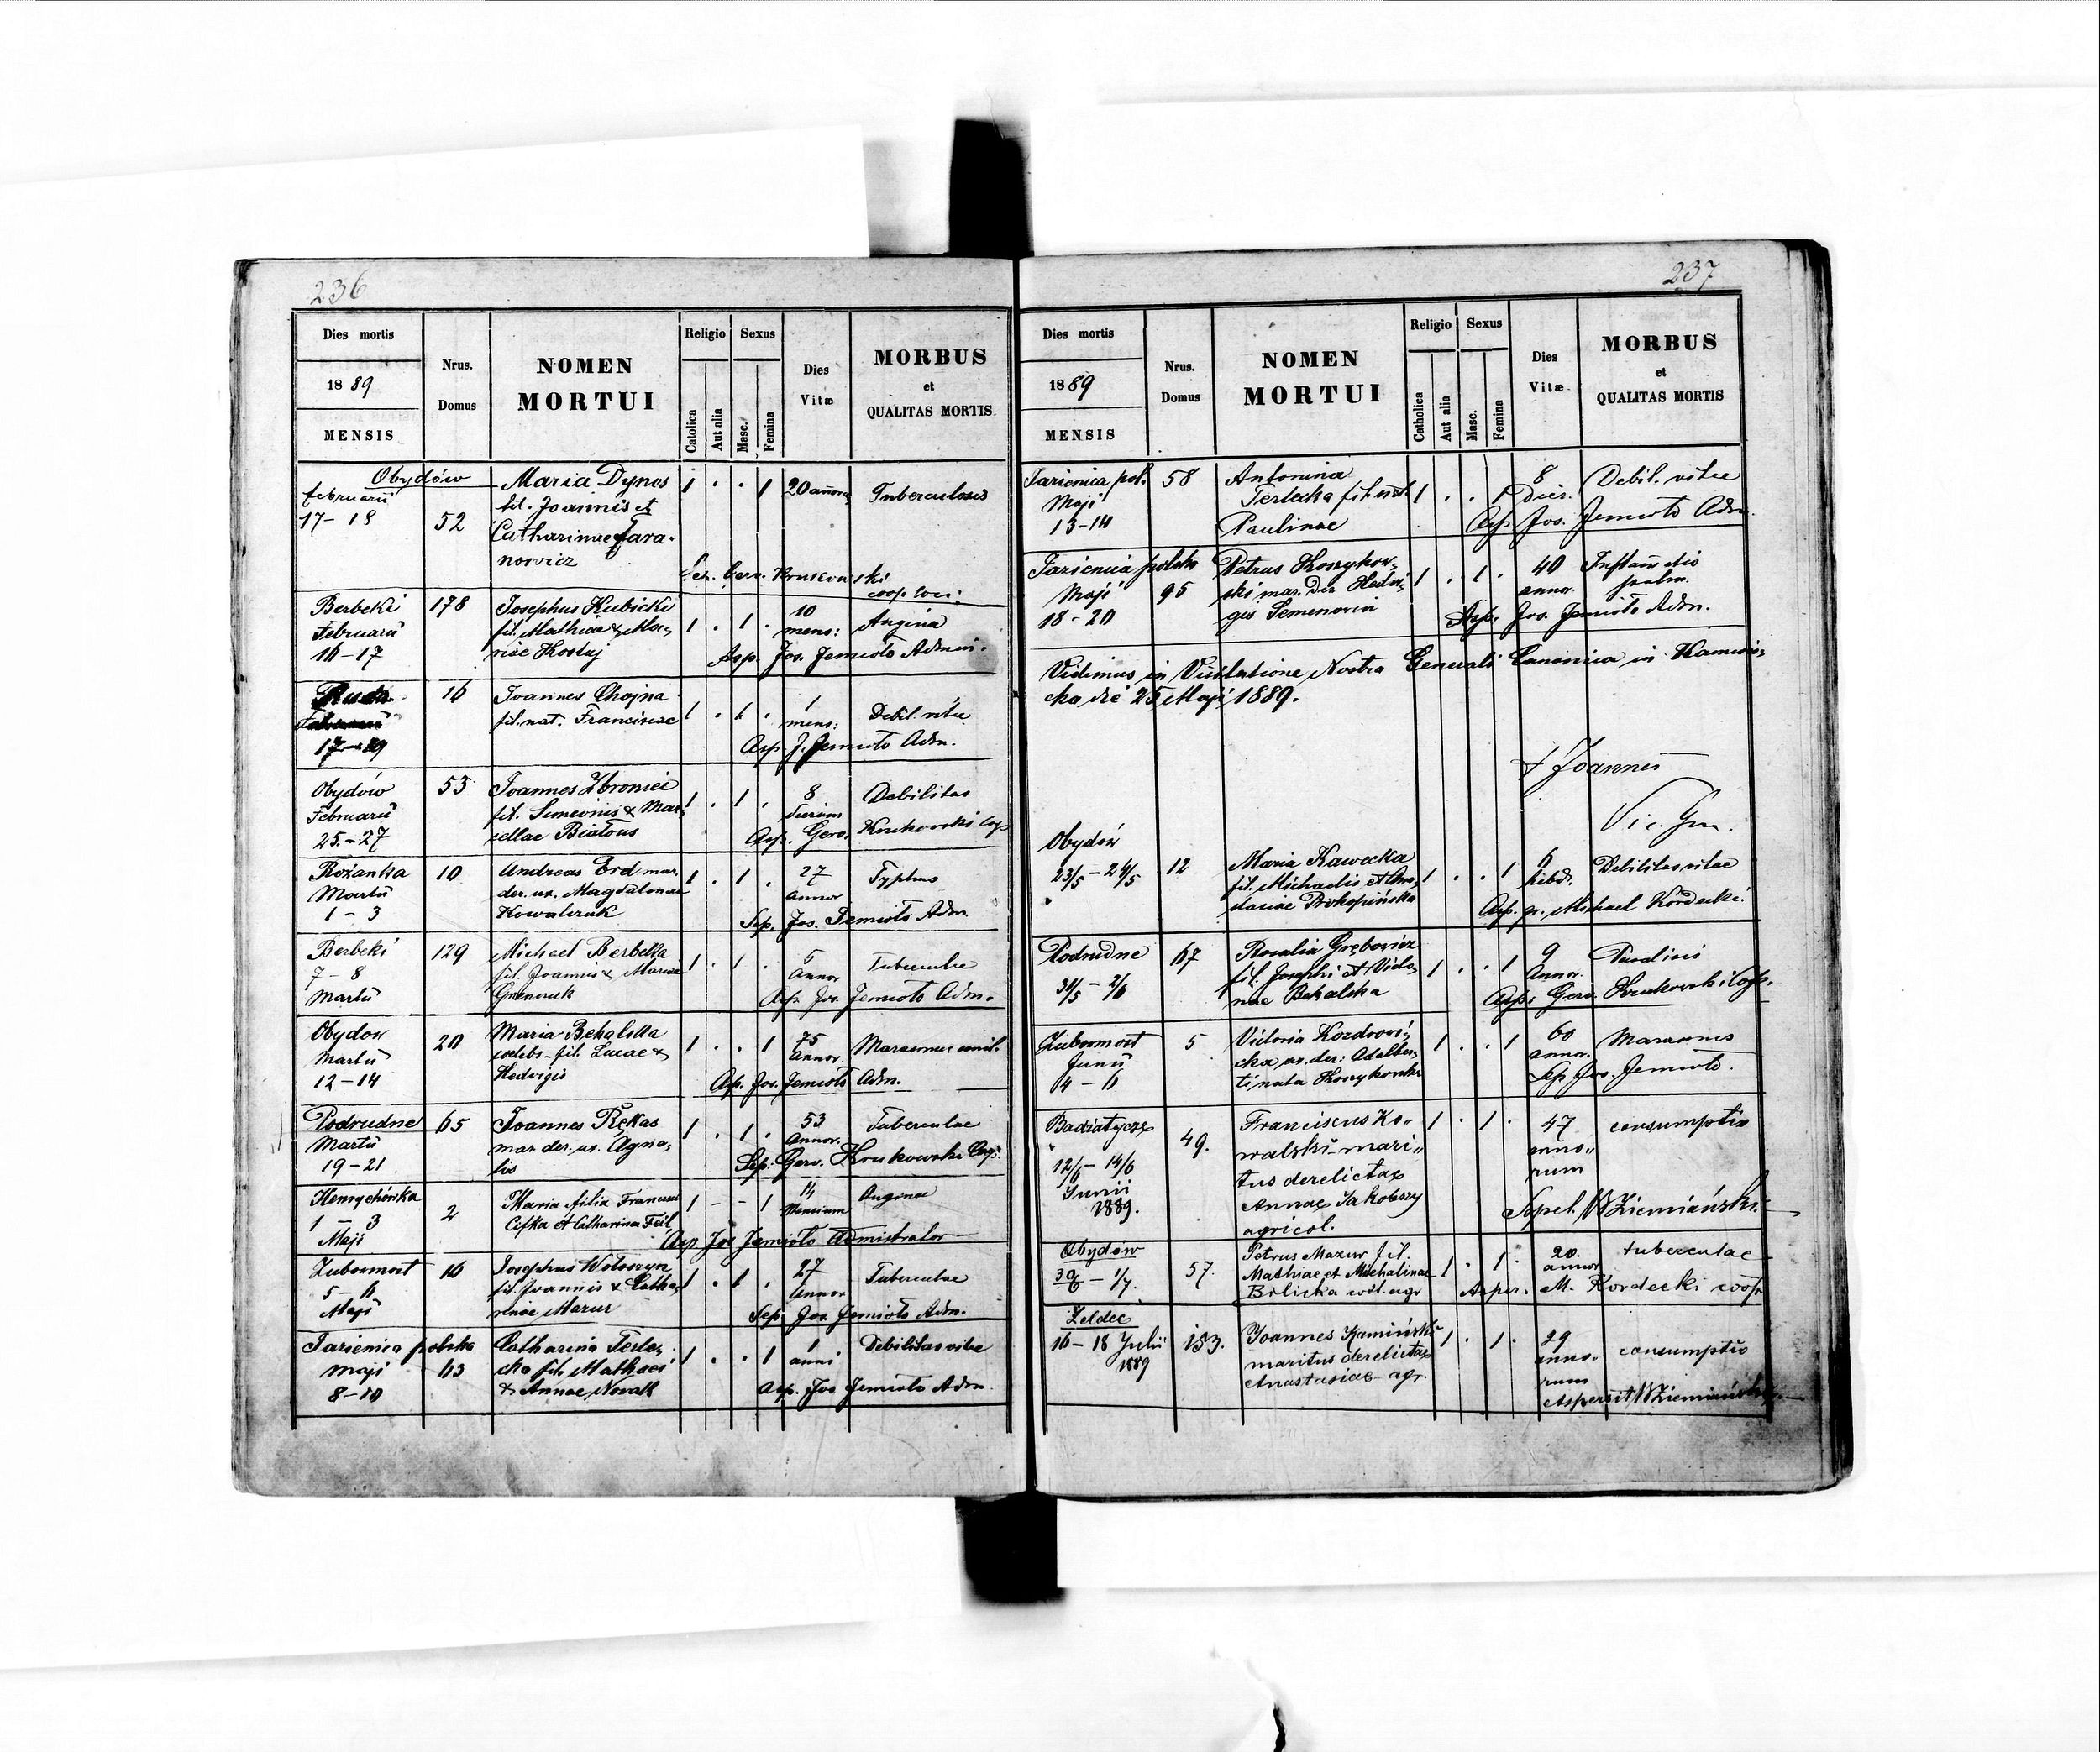 236
Dies mortis
1889
MENSIS
Nrus.
Domus
NOMEN
MORTUI
Religio
Catolica
Aut alia
Sexus
Masc.
Femina
Dies
Vitæ
MORBUS
et
QUALITAS MORTIS.
Obydów
februarii
17-18
52
Maria Dynos
fil. Joannis et
Catharinae Jara-
nowicz
1 . . 1
20 annor.
Tuberculosis
Gerv.
coop. loci.
Berbeki
Februarii
16-17
178
Josephus Kubicki
fil. Mathiae & Ma-
riae Kostuj
1 . 1 .
10
mens:
Angina
Asp. Jos. Jemioło Admin.
Ruda
Februarii
17-19
16
Joannes Chojna
fil. nat. Franciscae
1 . 1 .
1
mens:
Debil. vitae
Asp. J. Jemioło Adm.
Obydów
Februarii
25.-27
53
Joannes
fil. Simeonis & Mar-
cellae Białous
1 . 1 .
8
dierum
Debilitas
Asp. Gerv. Krukowski Coop
Rożanka
Martii
1 - 3
10
Andreas Erd mar.
der. ux. Magdalenae
Kowalczuk
1 . 1 .
27
Annor
Typhus
Sep. Jos. Jemioło Adm.
Berbeki
7 - 8
Martii
129
Michael Berbeka
fil. Joannis & Mariae
1 . 1 .
5
Annor
Tuberculae
Asp. Jos. Jemioło Adm.
Obydow
Martii
12-14
20
Maria Bekalska
coelebs - fil. Lucae &
Hedvigis
1 . . 1
75
Annor.
Marasmus senil.
Asp. Jos. Jemioło Adm.
Podrudne
Martii
19-21
65
Joannes Rękas
mar. der. ux. Agne-
tis
1 . 1 .
53
Annor.
Tuberculae
Sep. Gerv. Krukowski Coop.
Henrychówka
1 - 3
Maji
2
Maria filia Francisci
Cefka et Catharina Feil
1 - - 1
14
Mensium
Anginae
Asp Jos Jemioło Administrator
Zubowmost
5 - 6
Maji
16
Josephus Wołoszyn
fil. Joannis & Catha-
rinae Mazur
1 . 1 .
27
Annor
Tuberculae
Sep. Jos. Jemioło Adm.
Jazienica polska
Maji
8-10
63
Catharina Terle-
cka fil. Mathaei
& Annae Nowak
1 . . 1
1
anni
Debilitas vitae
Asp. Jos. Jemioło Adm.
237
Dies mortis
1889
MENSIS
Nrus.
Domus
NOMEN
MORTUI
Religio
Catholica
Aut alia
Sexus
Masc.
Femina
Dies
Vitæ
MORBUS
et
QUALITAS MORTIS
Jazienica pol.
Maji
13-14
58
Antonina
Terlecka fil. nat.
Paulinae
1 . . 1
8
Dier.
Debil. vitae
Asp. Jos. Jemioło Adm.
Jazienica polska
Maji
18-20
95
Petrus Koszykow-
ski mar. Der. Hedvi-
gis
1 . 1 .
40
annor.
Inflamatio
pulm.
Asp. Jos. Jemioło Adm.
Vidimus in Visitatione Nostra Generali Canonica in Kamion-
cka die 25 Maji 1889.
† Joannes
Vic. Gen.
Obydów
23/5 - 24/5
12
Maria Kawecka
fil. Michaelis et Ana-
stasiae Prokopińska
1 . . 1
6
hebd.
Debilitas vitae
Asp. pr. Michael Kordecki.
Podrudne
31/5 - 2/6
67
Rosalia Grębowicz
fil. Josephi et Victo-
riae Bekalska
1 . . 1
9
Annor.
Asp. Gerv. Krukowski Coop.
Zubowmost
Junii
4 - 6
5
Victoria
cka ux. der: Adalber-
ti nata Koszykowska
1 . . 1
60
annor.
Marasmus
Sep Jos. Jemioło.
Badiatycze
12/6 - 14/6
Junii
1889.
49.
Franciscus Ko-
walski - mari-
tus derelictae
Annae Jakobszy
agricol.
1 . 1 .
47
anno-
rum
consumptio
Sepel. W Ziemiański
Obydów
30/6 - 1/7.
57.
Petrus Mazur fil.
Mathiae et Michalinae
Bilicka coel. agr
1 . 1 .
20.
annor
tuberculae
Asper. M. Kordecki coop.
Zeldec
16-18 Julii
1889
153.
Joannes Kamiński
maritus derelictae
Anastasiae - agr.
1 . 1 .
29
anno-
rum
consumptio
Aspersit W Ziemiański